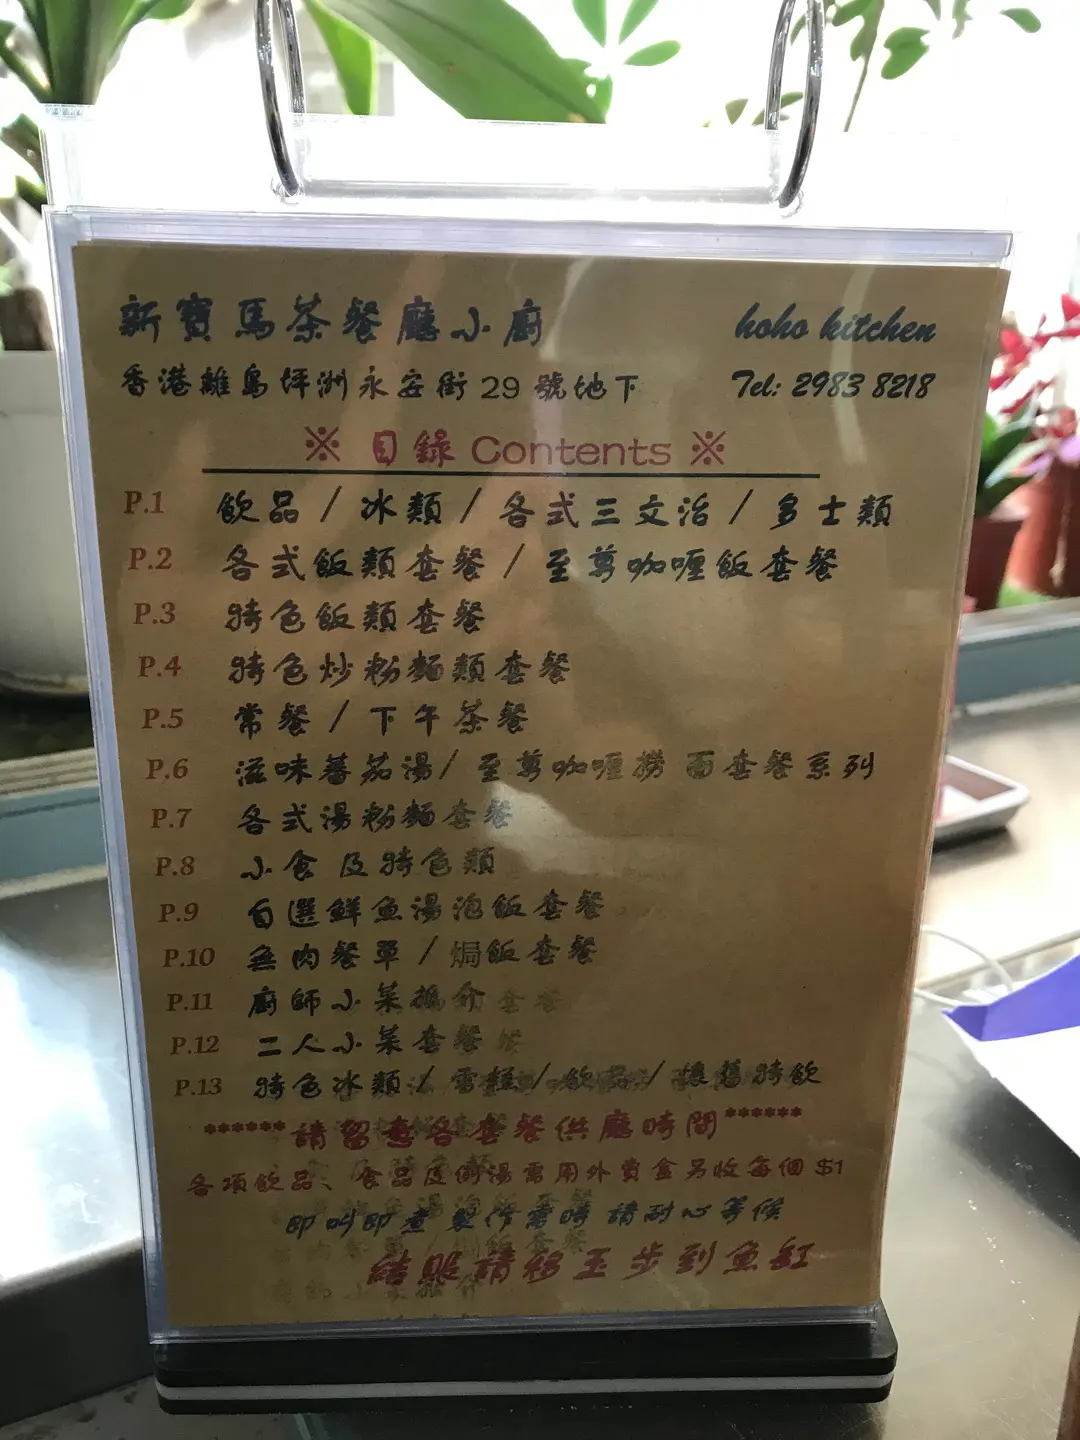 新寶馬茶餐廳小廚 hoho kitchen
香港離島坪洲永安街 29 號地下 Tel: 2983 8218
※ 目錄 Contents ※
P.1 飲品 / 冰類 / 各式三文治 / 多士類
P.2 各式飯類套餐 / 至尊咖喱飯套餐
P.3 特色飯類套餐
P.4 特色炒粉麵類套餐
P.5 常餐 / 下午茶餐
P.6 滋味蕃茄湯/ 至尊咖喱撈 面套餐系列
P.7 各式湯粉麵套餐
P.8 小食 及特色類
P.9 自選鮮魚湯泡飯套餐
P.10 無肉餐單 / 焗飯套餐
P.11 廚師小菜推介
P.12 二人小菜套餐
P.13 特色冰類/ 雪糕/ 飲品/ 懷舊特飲
******請留意各套餐供應時間******
各項飲品、食品及例湯需用外賣盒另收每個 $1
即叫即煮 製作需時 請耐心等候
結賬請移玉步到魚缸